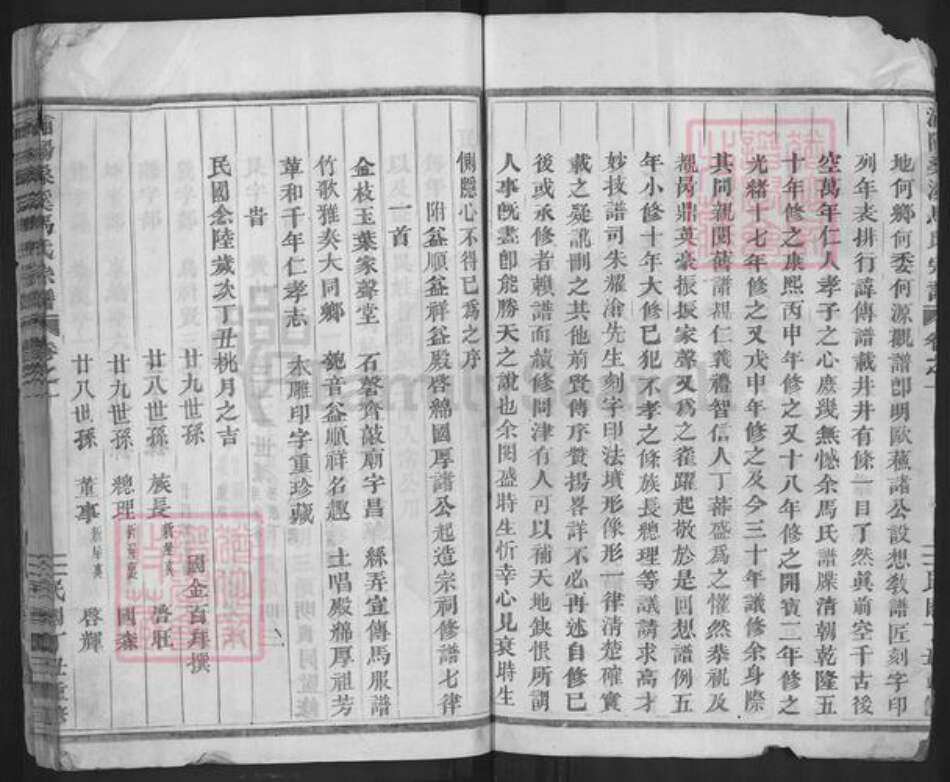 地何鄉何委何源觀譜卽明歐蘇諸公設想敎譜匠刻字印
列年表排行諱傳譜載井井有條一目了然眞前空千古後
空萬年仁人孝子之心庶幾無憾余馬氏譜牒清朝乾隆五
十年修之康熙丙申年修之又十八年修之開寶二年修之
光緒十七年修之又戊申年修之及今三十年議修余身際
其間親閱舊譜規仁義禮智信人丁蕃盛爲之懽然恭祝及
覩房鼎英豪振振家聲又爲之雀躍起敬於是回想譜例五
年小修十年大修已犯不孝之條族長總理等議請求高才
妙技譜司朱燿淦先生刻字印法墳形像形一律清楚確實
載之疑訛刪之其他前賢傳序贊揚畧詳不必再述自修已
後或承修者賴譜而續修問津有人可以補天地缺恨所謂
人事旣盡卽能勝天之說也余閱盛時生忻幸心見衰時生
惻隱心不得已爲之序
附益順益祥益殿啓綿國厚譜公起造宗祠修譜七律
一首
金枝玉葉家聲堂 石磬齊敲廟宇昌 絲弄宣傳馬服譜
竹歌雅奏大同鄉 匏音益順祥名趣 土唱殿綿厚祖芳
革和千年仁孝志 木雕印字重珍藏
旹
民國念陸歲次丁丑桃月之吉
廿九世孫 國金百拜撰
廿八世孫 族長 啓旺
廿九世孫 總理 國森
廿八世孫 董事 啓輝
浦陽梁溪馬氏宗譜 卷之一 民國丁丑重修